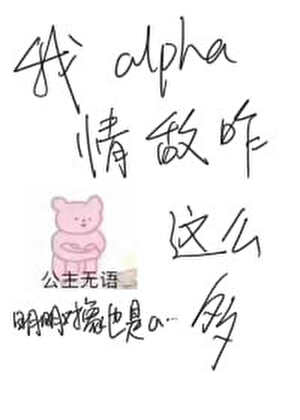 我 alpha
情敌咋
这么
多
公主无语
明明对象也是a…